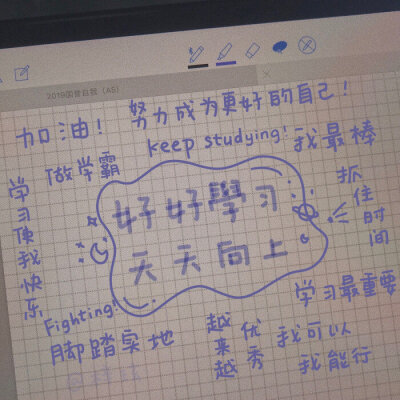 2019国誉自我(A5)
加油!
努力成为更好的自己!
keep studying!
我最棒
做学霸
学习使我快乐
好好學习
天天向上
抓住时间
Fighting!
脚踏实地
越来越优秀
学习最重要
我可以
我能行